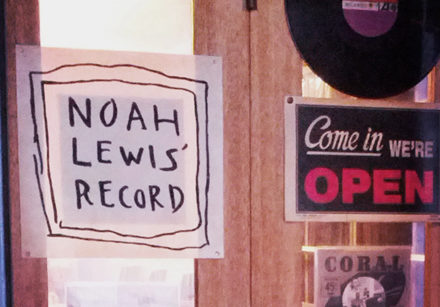 NOAH
LEWIS'
RECORD
Come in WE'RE
OPEN
CORAL
45